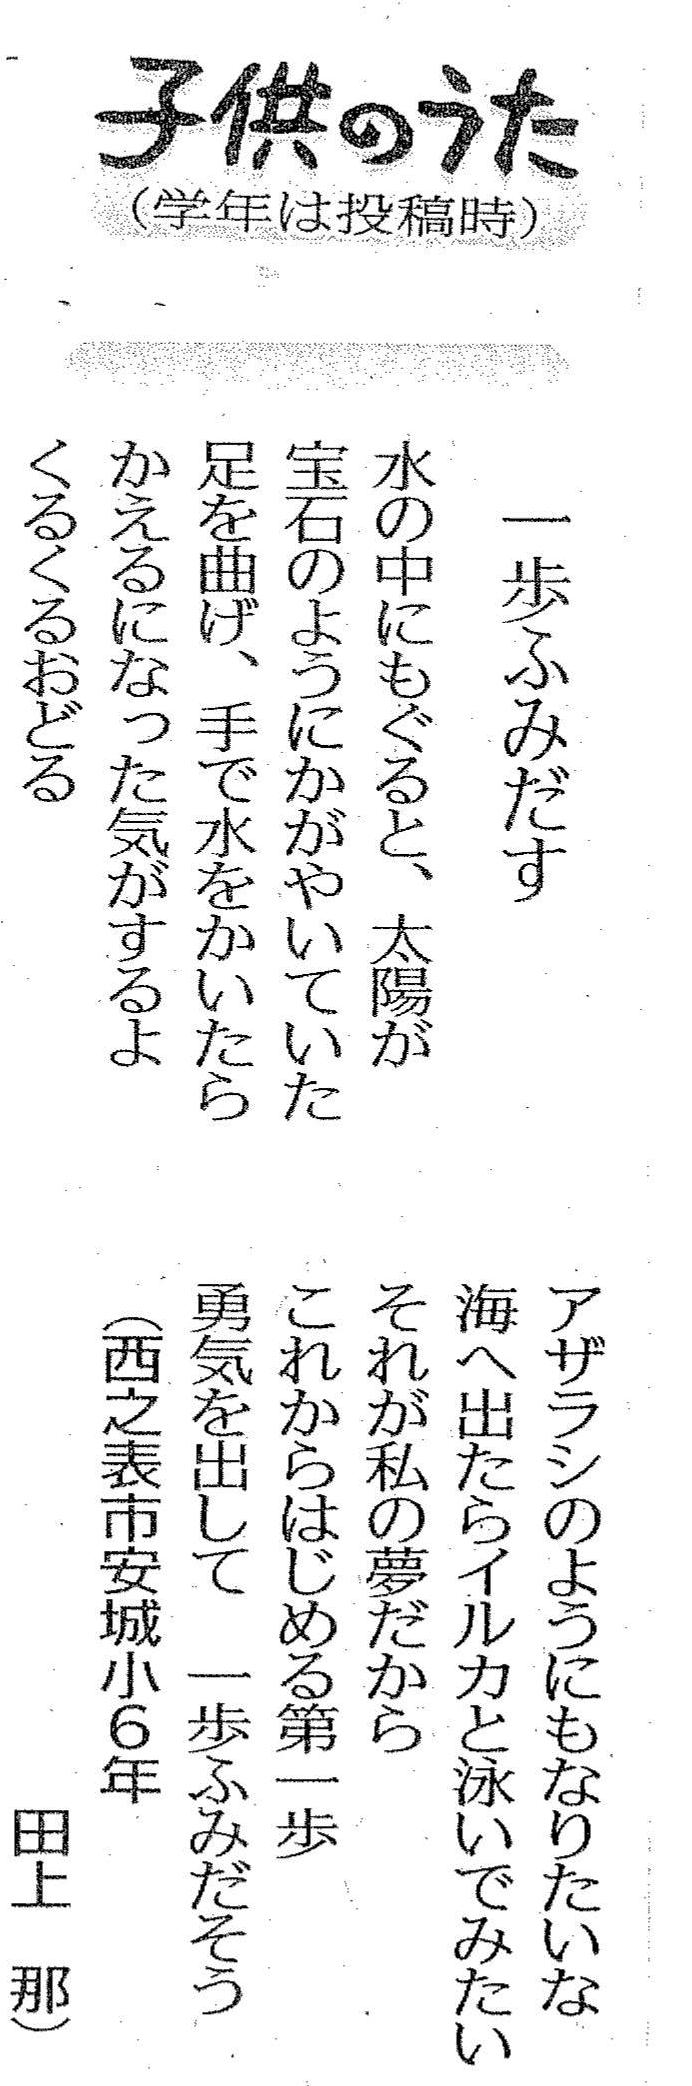 子供のうた
（学年は投稿時）
一歩ふみだす
水の中にもぐると、太陽が
宝石のようにかがやいていた
足を曲げ、手で水をかいたら
かえるになった気がするよ
くるくるおどる
アザラシのようにもなりたいな
海へ出たらイルカと泳いでみたい
それが私の夢だから
これからはじめる第一歩
勇気を出して　一歩ふみだそう
（西之表市安城小６年
田上　那）